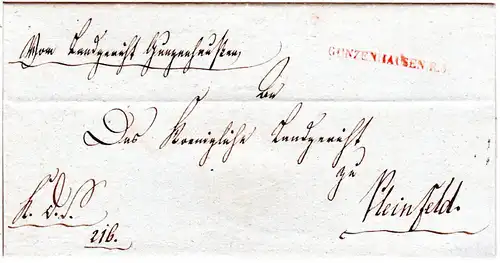 Vom Landgericht Gunzenhausen
GUNZENHAUSEN.R.3.
An
Das Koenigliche Landgericht
zu
Pleinfeld.
K. D. S.
216.